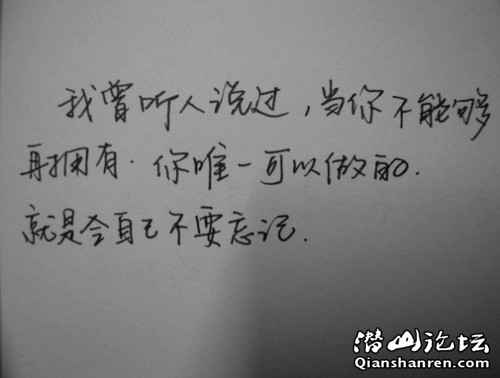 我曾听人说过，当你不能够
再拥有．你唯一可以做的．
就是令自己不要忘记．
潜山论坛
Qianshanren.com